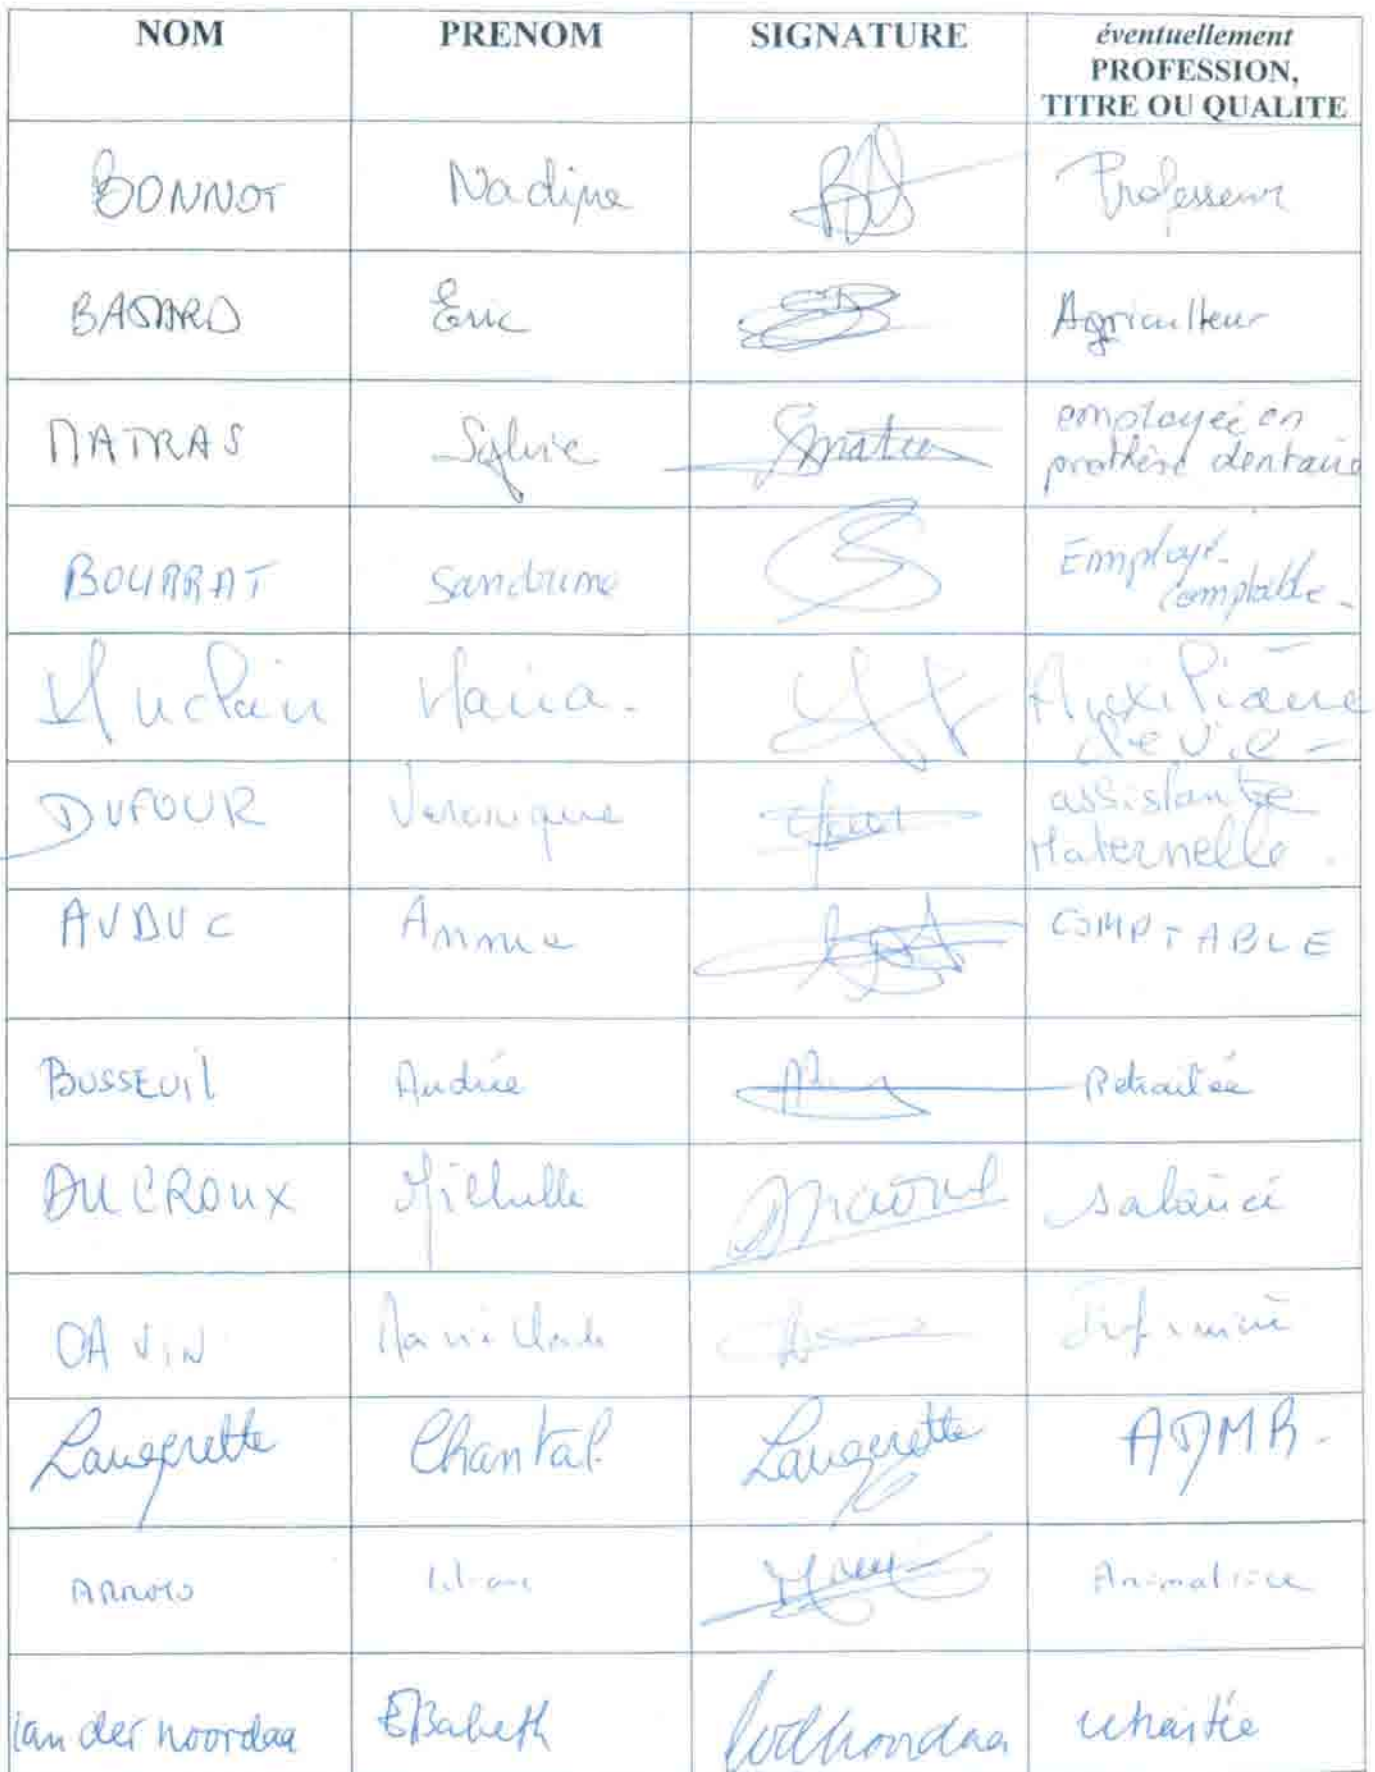 NOM PRENOM SIGNATURE éventuellement
PROFESSION,
TITRE OU QUALITE
BONNOT Nadine Professeur
BATARD Eric Agriculteur
MATRAS Sylvie Smatras employée en
prothèse dentaire
BOURRAT Sandrine Employé
Comptable -
Maria. Auxiliaire
de vie -
DUFOUR Véronique assistante
Maternelle.
AUDUC Annie COMPTABLE
BUSSEUIL Andrée Retraitée
DUCROUX Michelle salarié
DAVIN
Chantal. ADMR.
Animatrice
van der noordaa Elisabeth vdnoordaa retraitée